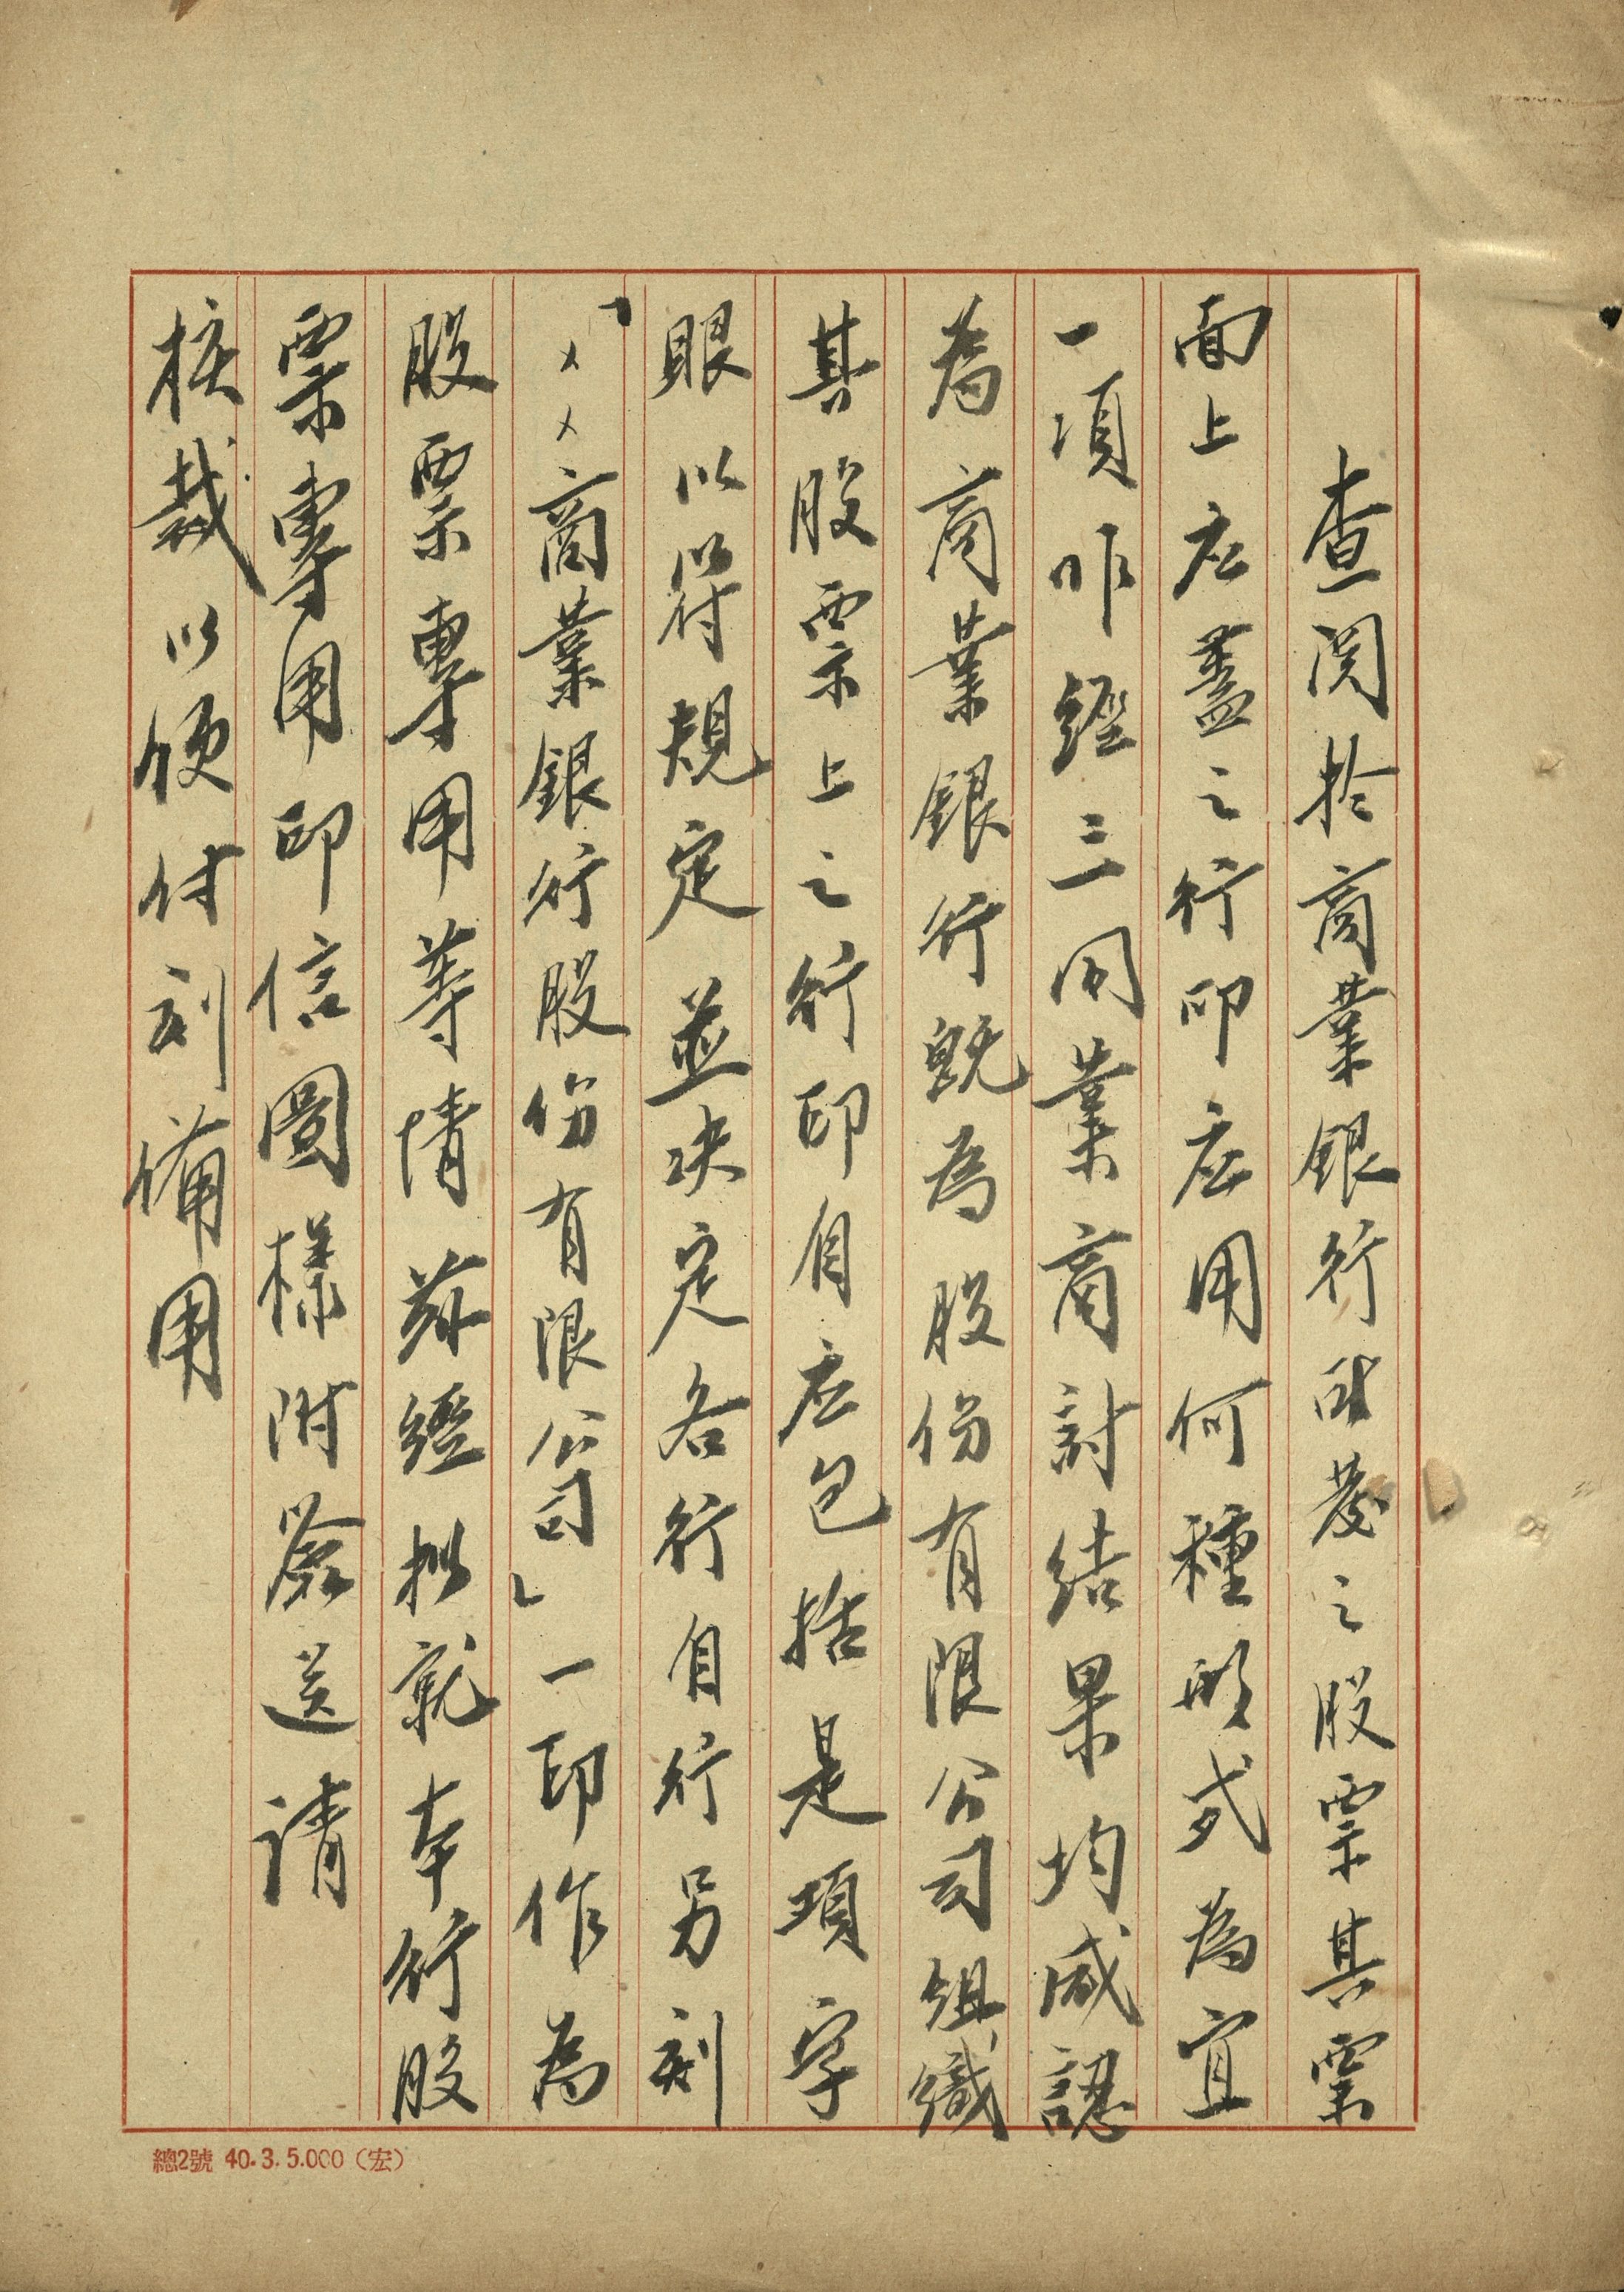 查関於商業銀行所发之股票其票
面上应蓋之行印应用何種形式為宜
一項昨經三同業商討结果均咸認
為商業銀行既為股份有限公司组織
其股票上之行印自应包括是項字
眼以符規定並决定各行自行另刻
「××商業銀行股份有限公司」一印作為
股票專用等情兹經拟就本行股
票專用印信圖樣附簽送請
核裁以便付刻備用
總2號 40.3.5.000(宏)